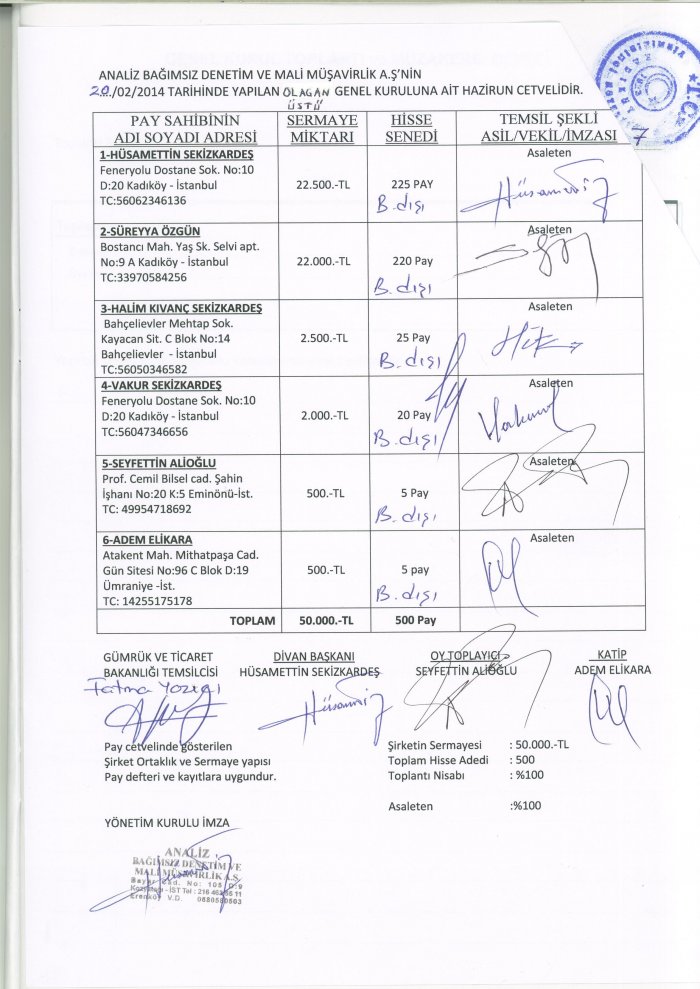 ANALİZ BAĞIMSIZ DENETİM VE MALİ MÜŞAVİRLİK A.Ş'NİN
20./02/2014 TARİHİNDE YAPILAN OLAĞAN GENEL KURULUNA AİT HAZİRUN CETVELİDİR.
ÜSTÜ
PAY SAHİBİNİN ADI SOYADI ADRESİ
SERMAYE MİKTARI
HİSSE SENEDİ
TEMSİL ŞEKLİ ASİL/VEKİL/İMZASI
7
1-HÜSAMETTİN SEKİZKARDEŞ
Feneryolu Dostane Sok. No:10
D:20 Kadıköy - İstanbul
TC:56062346136
22.500.-TL
225 PAY
B.dışı
Asaleten
2-SÜREYYA ÖZGÜN
Bostancı Mah. Yaş Sk. Selvi apt.
No:9 A Kadıköy - İstanbul
TC:33970584256
22.000.-TL
220 Pay
B.dışı
Asaleten
3-HALİM KIVANÇ SEKİZKARDEŞ
Bahçelievler Mehtap Sok.
Kayacan Sit. C Blok No:14
Bahçelievler - İstanbul
TC:56050346582
2.500.-TL
25 Pay
B.dışı
Asaleten
4-VAKUR SEKİZKARDEŞ
Feneryolu Dostane Sok. No:10
D:20 Kadıköy - İstanbul
TC:56047346656
2.000.-TL
20 Pay
B.dışı
Asaleten
5-SEYFETTİN ALİOĞLU
Prof. Cemil Bilsel cad. Şahin
İşhanı No:20 K:5 Eminönü-İst.
TC: 49954718692
500.-TL
5 Pay
B.dışı
Asaleten
6-ADEM ELİKARA
Atakent Mah. Mithatpaşa Cad.
Gün Sitesi No:96 C Blok D:19
Ümraniye -İst.
TC: 14255175178
500.-TL
5 pay
B.dışı
Asaleten
TOPLAM 50.000.-TL 500 Pay
GÜMRÜK VE TİCARET
BAKANLIĞI TEMSİLCİSİ
Fatma Yozgı
DİVAN BAŞKANI
HÜSAMETTİN SEKİZKARDEŞ
OY TOPLAYICI
SEYFETTİN ALİOĞLU
KATİP
ADEM ELİKARA
Pay cetvelinde gösterilen
Şirket Ortaklık ve Sermaye yapısı
Pay defteri ve kayıtlara uygundur.
Şirketin Sermayesi : 50.000.-TL
Toplam Hisse Adedi : 500
Toplantı Nisabı : %100
Asaleten :%100
YÖNETİM KURULU İMZA
ANALİZ
BAĞIMSIZ DENETİM VE
MALİ MÜŞAVİRLİK A.Ş.